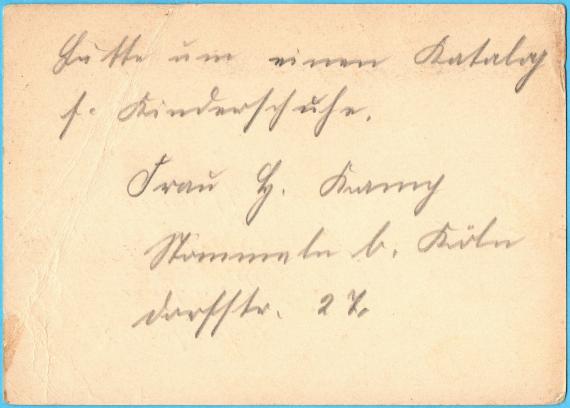 Bitte um einen Katalog
f. Kinderschuhe.
Frau H. Kamp
Stommeln b. Köln
Dorfstr. 27.